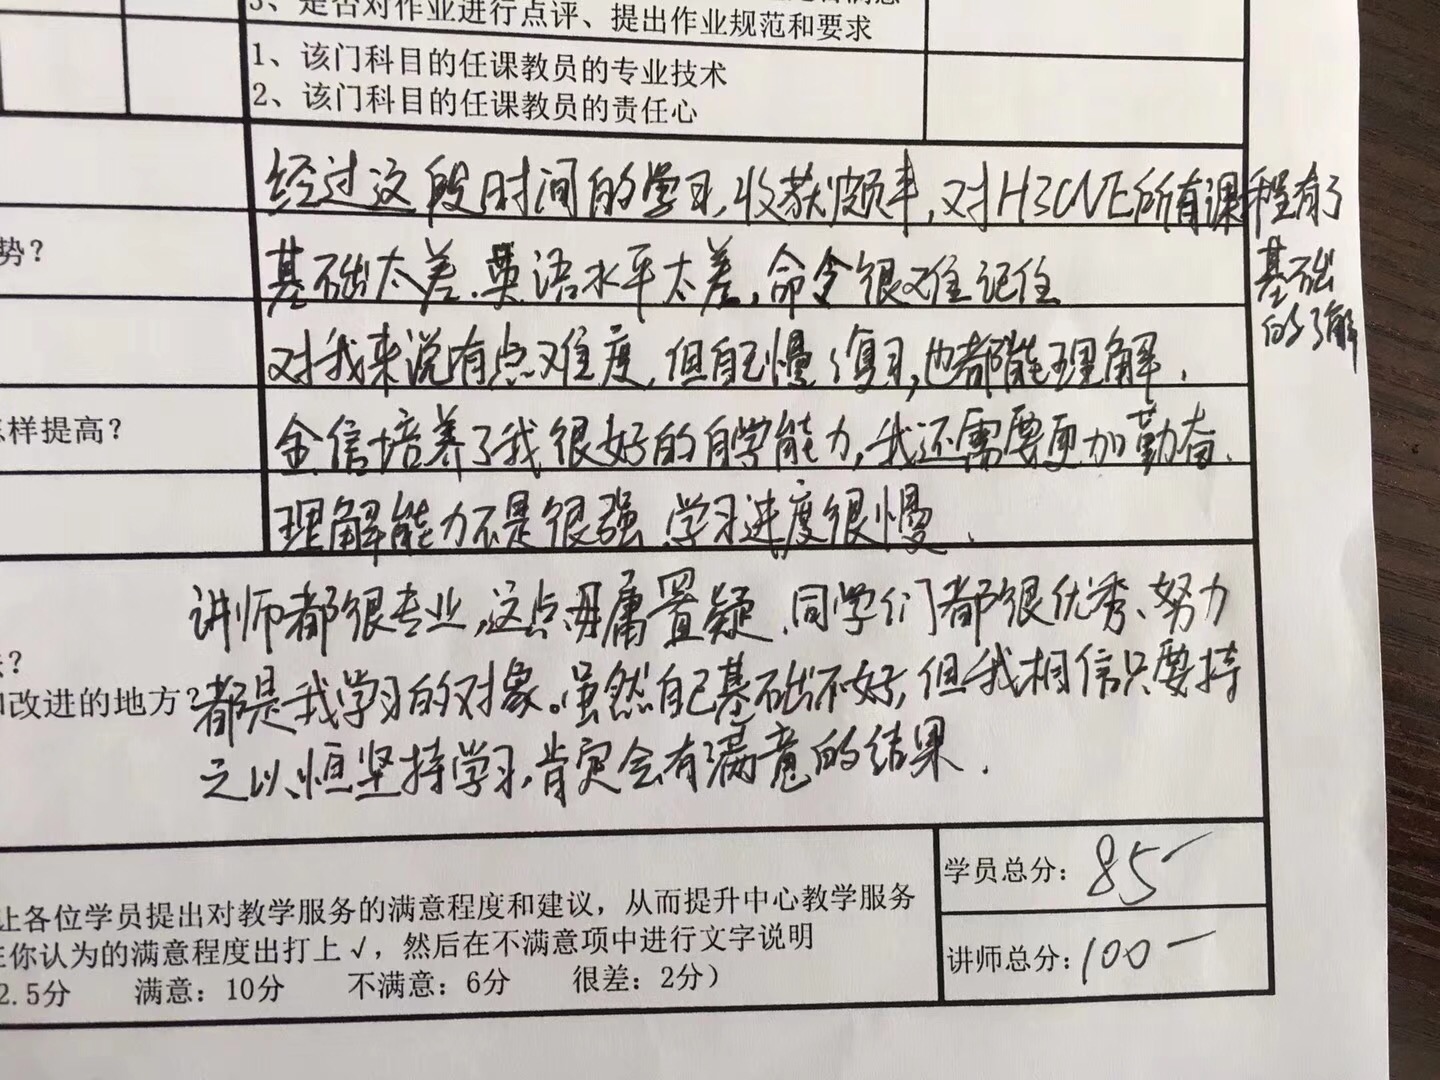 3、是否对作业进行点评、提出作业规范和要求
1、该门科目的任课教员的专业技术
2、该门科目的任课教员的责任心
经过这段时间的学习,收获颇丰,对H3CNE所有课程有了
基础
的了解
势?
基础太差、英语水平太差,命令很难记住
对我来说有点难度,但自己慢慢复习,也都能理解.
怎样提高?
金信培养了我很好的自学能力,我还需要更加勤奋.
理解能力不是很强、学习进度很慢.
讲师都很专业,这点毋庸置疑、同学们都很优秀、努力
?
和改进的地方?
都是我学习的对象。虽然自己基础不好,但我相信只要持
之以恒坚持学习,肯定会有满意的结果.
学员总分: 85
让各位学员提出对教学服务的满意程度和建议,从而提升中心教学服务
在你认为的满意程度出打上√,然后在不满意项中进行文字说明
讲师总分: 100
2.5分 满意: 10分 不满意: 6分 很差: 2分)